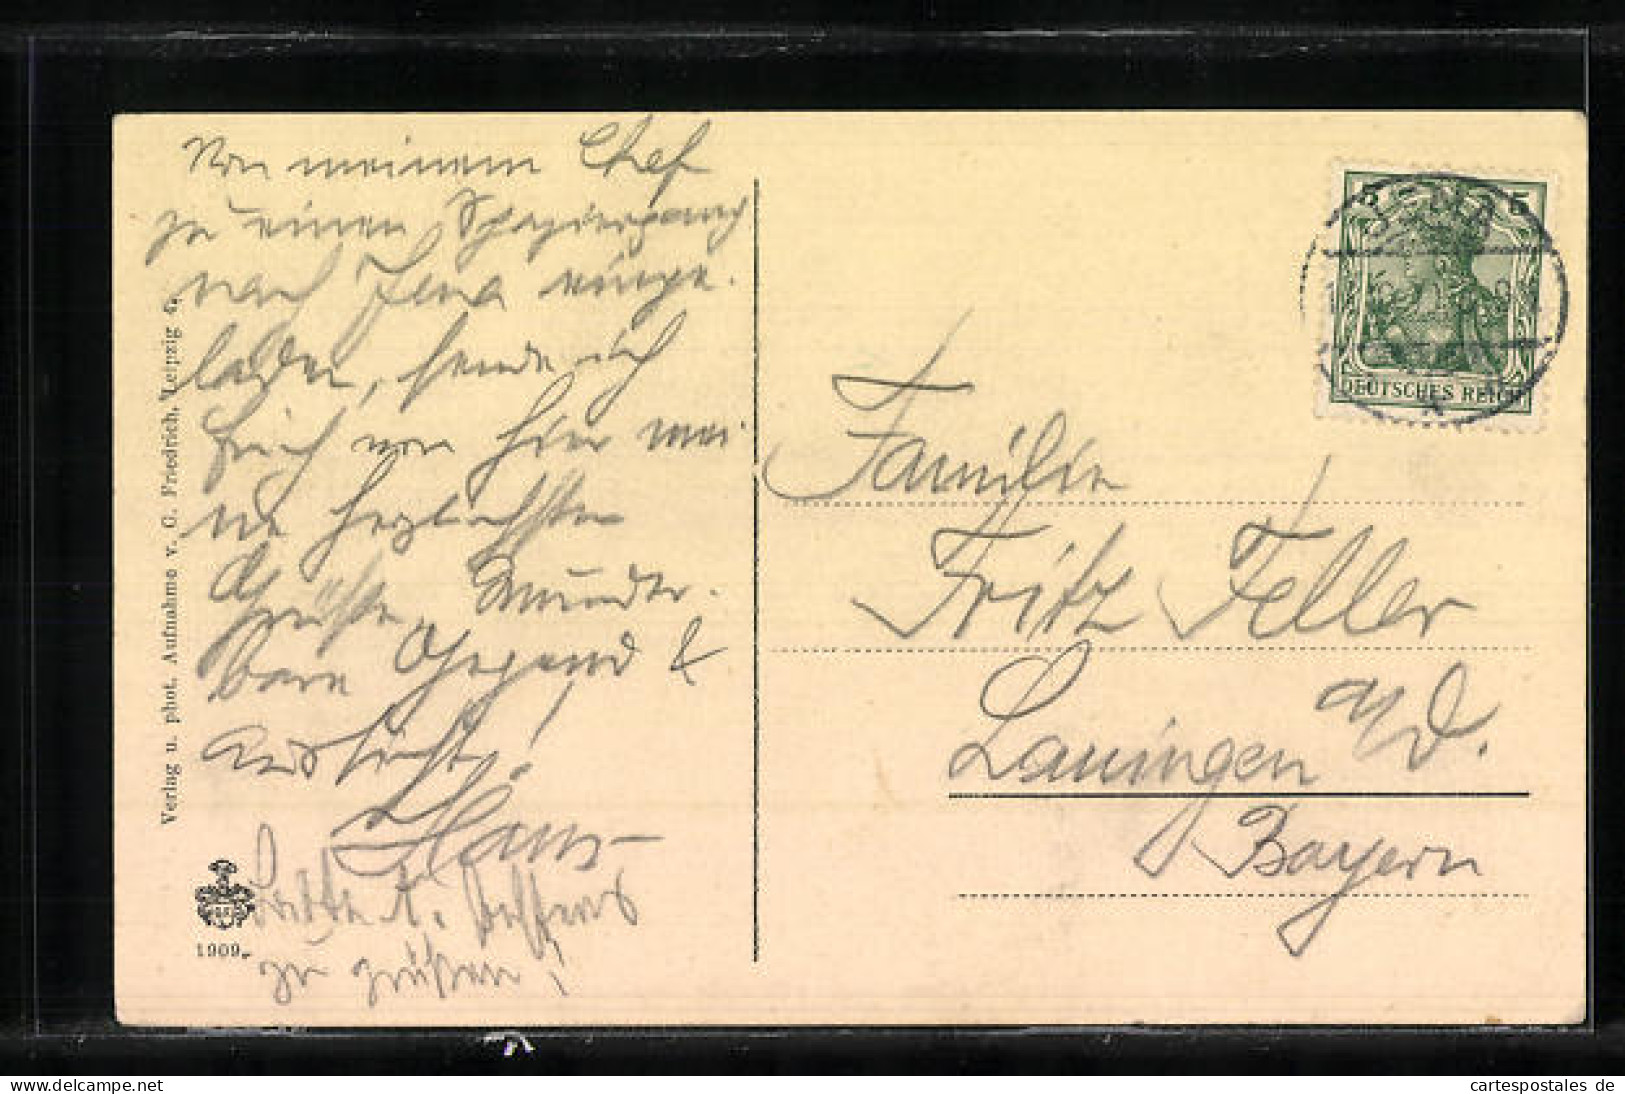 Von meinem Chef
zu einen Spaziergang
nach Jena einge-
laden, sende ich
Euch von hier mei-
ne herzlichsten
Grüße. Wunder-
bare Gegend &
Aussicht!
Hans
Bitte A. bestens
zu grüßen!
Verlag u. phot. Aufnahme v. C. Friedrich, Leipzig 4.
1909.
5 5
DEUTSCHES REICH
JENA
Familie
Fritz Feller
Lauingen a/D.
Bayern
Image sur
cartespostales de